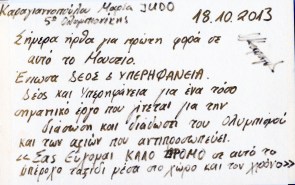 Καραγιαννοπούλου Μαρία JUDO
5η Ολυμπιονίκης
18.10.2013
Σήμερα ήρθα για πρώτη φορά σε
αυτό το Μουσείο.
Ένιωσα ΔΕΟΣ & ΥΠΕΡΗΦΑΝΕΙΑ.
Δέος και Υπερηφάνεια για ένα τόσο
σημαντικό έργο που γίνεται για την
διάσωση και διάδοση του Ολυμπισμού
και των αξιών που αντιπροσωπεύει.
«Σας Εύχομαι ΚΑΛΟ ΔΡΟΜΟ σε αυτό το
υπέροχο ταξίδι μέσα στο χώρο και τον χρόνο»